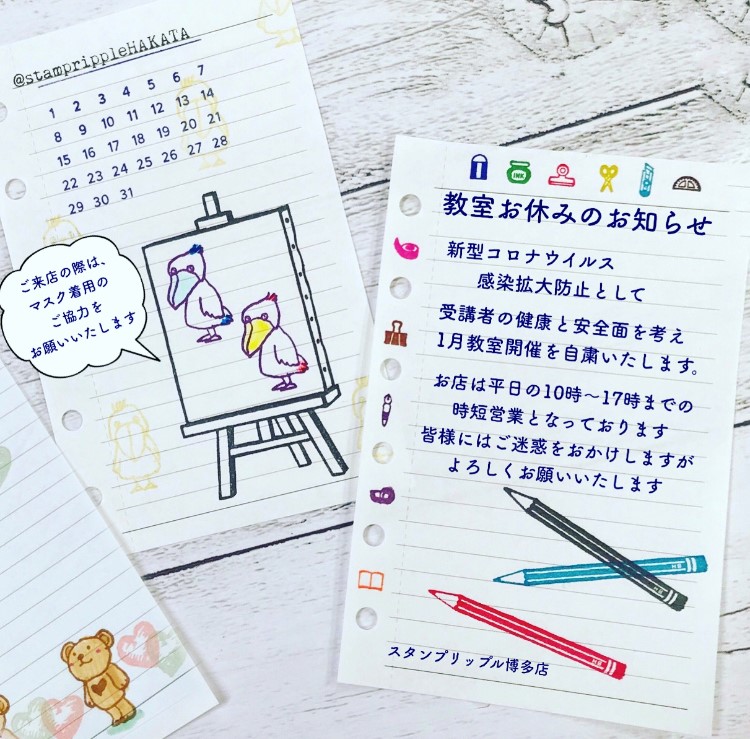 @stamprippleHAKATA
1 2 3 4 5 6 7
8 9 10 11 12 13 14
15 16 17 18 19 20 21
22 23 24 25 26 27 28
29 30 31
ご来店の際は、
マスク着用の
ご協力を
お願いいたします
INK
教室お休みのお知らせ
新型コロナウイルス
感染拡大防止として
受講者の健康と安全面を考え
1月教室開催を自粛いたします。
お店は平日の10時〜17時までの
時短営業となっております
皆様にはご迷惑をおかけしますが
よろしくお願いいたします
HB
HB
HB
スタンプリップル博多店